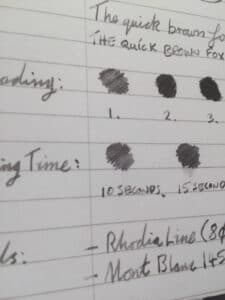 The quick brown fo
THE QUICK BROWN FOX
ading:
1. 2. 3.
ing Time:
10 SECONDS. 15 SECOND
ls:
- Rhodia Line (80
- Mont Blanc 145